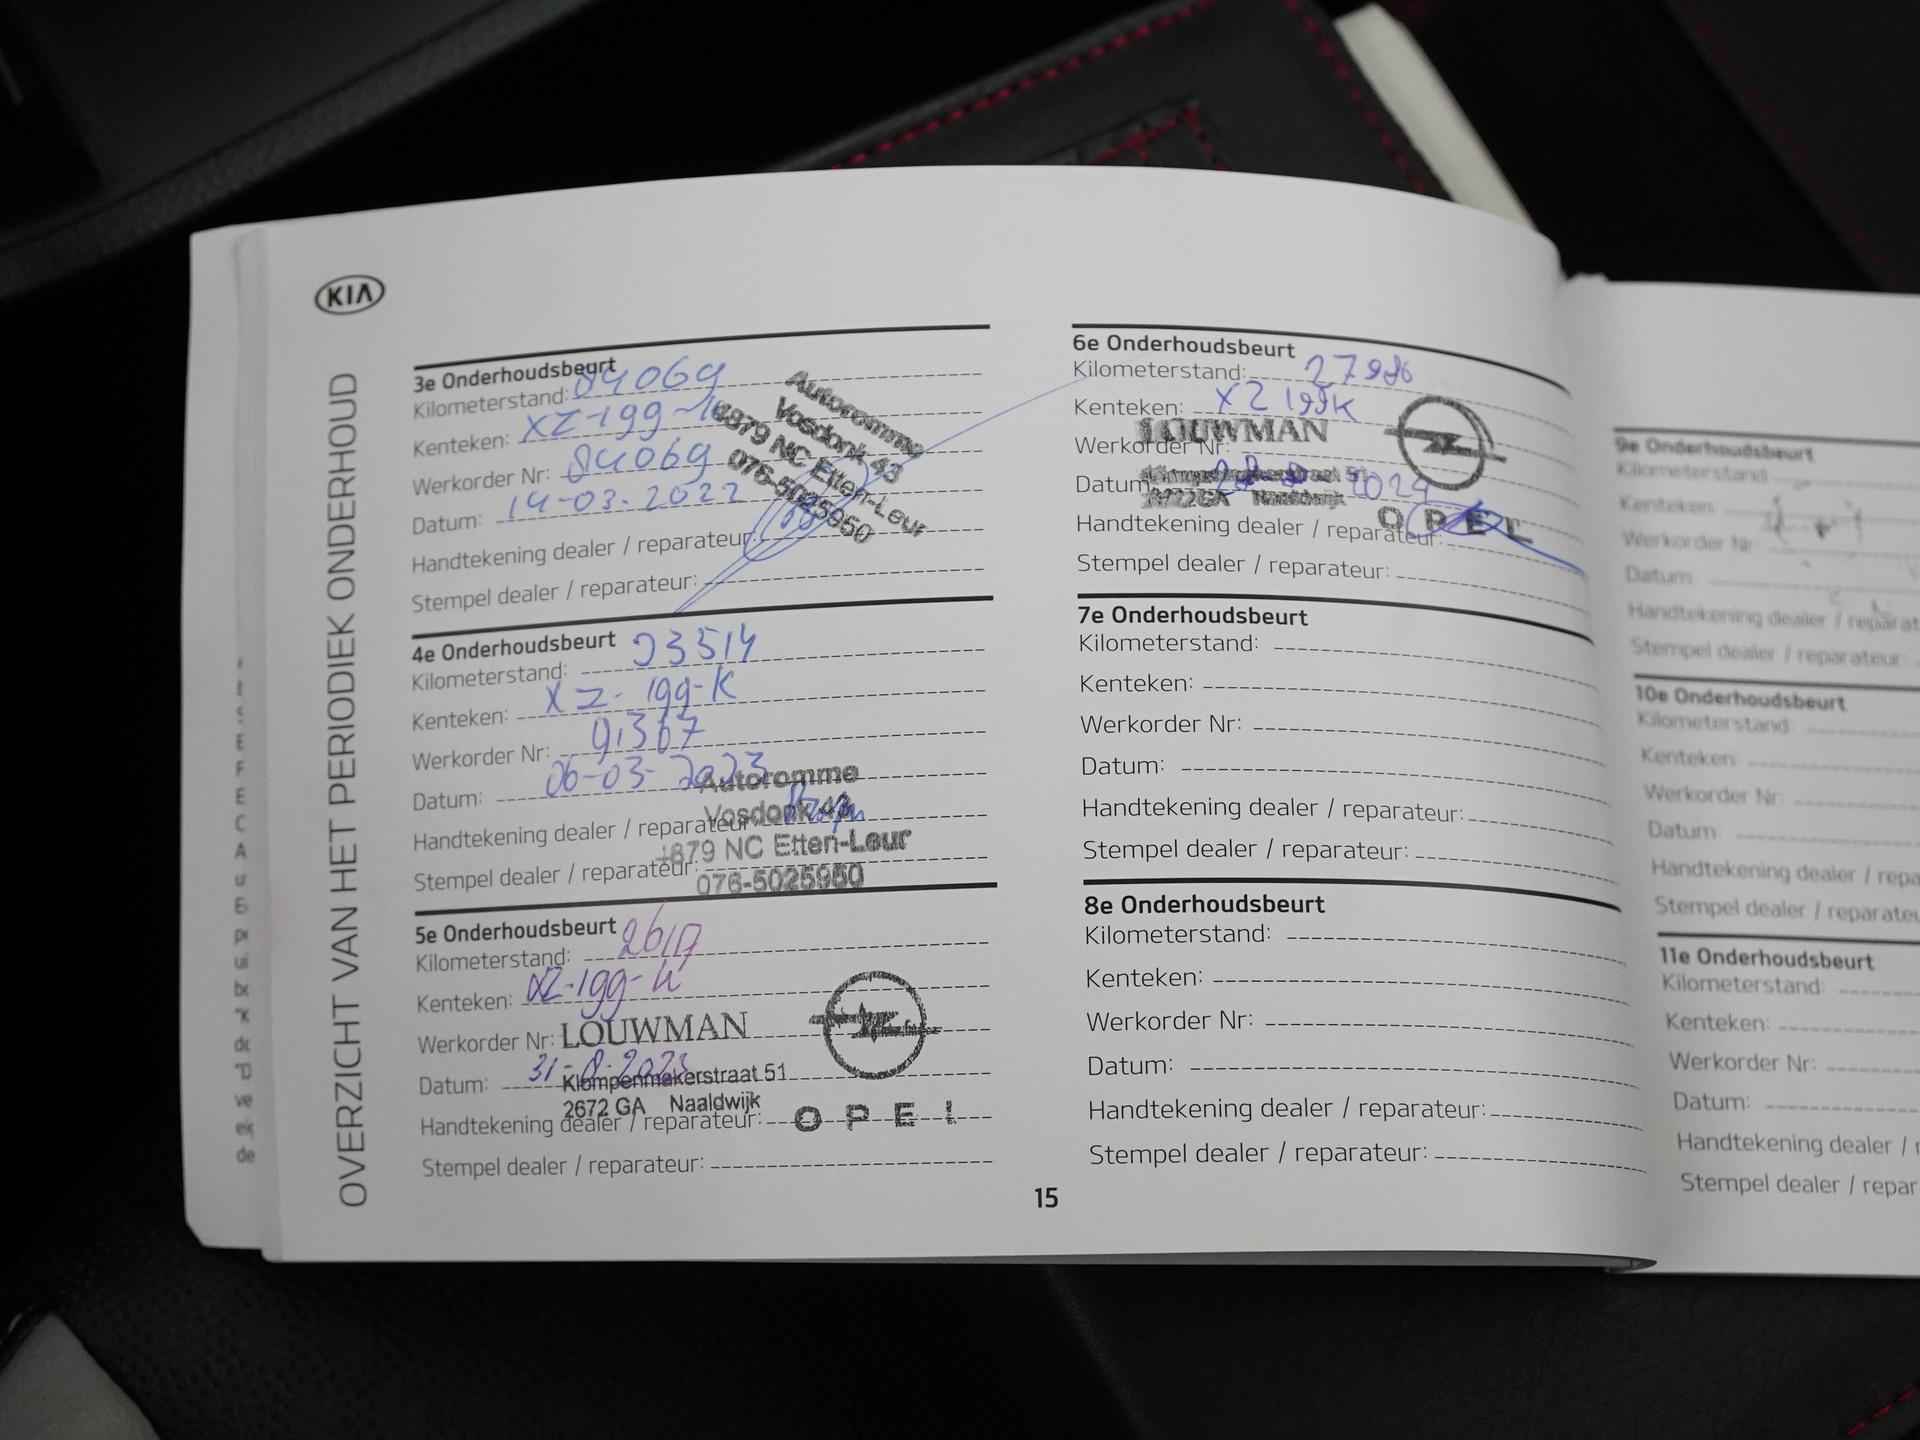 KIA
OVERZICHT VAN HET PERIODIEK ONDERHOUD
3e Onderhoudsbeurt
Kilometerstand: 84069
Kenteken: XZ-199-K
Werkorder Nr: 84069
Datum: 14-03-2022
Handtekening dealer / reparateur:
Stempel dealer / reparateur:
Autoromme
Vosdonk 43
4879 NC Etten-Leur
076-5025950
4e Onderhoudsbeurt
Kilometerstand: 93514
Kenteken: XZ-199-K
Werkorder Nr: 91367
Datum: 06-03-2023
Handtekening dealer / reparateur:
Stempel dealer / reparateur:
Autoromme
Vosdonk 43
4879 NC Etten-Leur
076-5025950
5e Onderhoudsbeurt
Kilometerstand:
Kenteken: XZ-199-K
Werkorder Nr:
Datum: 31-8-2023
Handtekening dealer / reparateur:
Stempel dealer / reparateur:
LOUWMAN
Klompenmakerstraat 51
2672 GA Naaldwijk
OPEL
6e Onderhoudsbeurt
Kilometerstand: 27986
Kenteken: XZ199K
Werkorder Nr:
Datum: 2024
Handtekening dealer / reparateur:
Stempel dealer / reparateur:
LOUWMAN
Klompenmakerstraat 51
2672 GA Naaldwijk
OPEL
7e Onderhoudsbeurt
Kilometerstand:
Kenteken:
Werkorder Nr:
Datum:
Handtekening dealer / reparateur:
Stempel dealer / reparateur:
8e Onderhoudsbeurt
Kilometerstand:
Kenteken:
Werkorder Nr:
Datum:
Handtekening dealer / reparateur:
Stempel dealer / reparateur:
15
9e Onderhoudsbeurt
Kilometerstand
Kenteken
Werkorder Nr
Datum
Handtekening dealer / reparat
Stempel dealer / reparateur:
10e Onderhoudsbeurt
Kilometerstand:
Kenteken:
Werkorder Nr:
Datum:
Handtekening dealer / repa
Stempel dealer / reparateu
11e Onderhoudsbeurt
Kilometerstand:
Kenteken:
Werkorder Nr:
Datum:
Handtekening dealer / r
Stempel dealer / repar